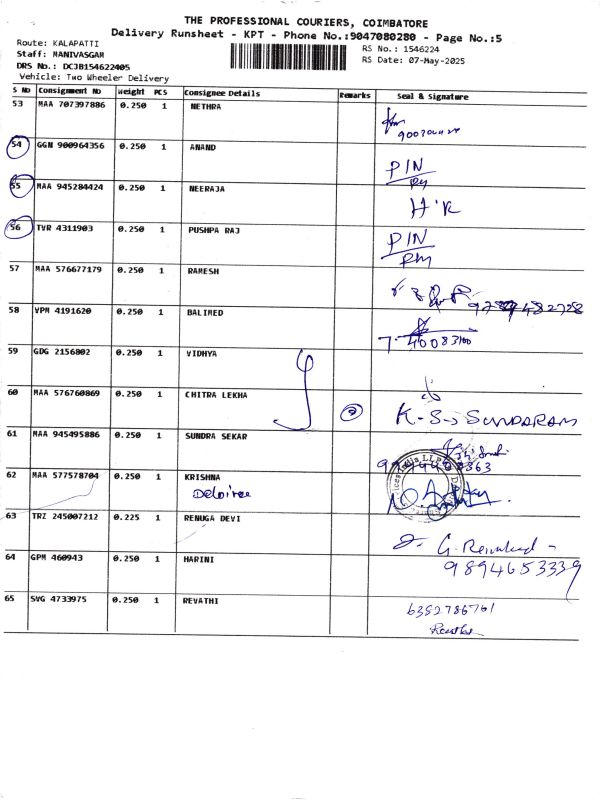 THE PROFESSIONAL COURIERS, COIMBATORE
Delivery Runsheet - KPT - Phone No.:9047080280 - Page No.:5
Route: KALAPATTI
RS No.: 1546224
Staff: MANIVASGAM
RS Date: 07-May-2025
DRS No.: DCJB154622405
Vehicle: Two Wheeler Delivery
S No Consignment No Weight PCS Consignee Details Remarks Seal & Signature
53 MAA 707397886 0.250 1 NETHRA
54 GGN 900964356 0.250 1 ANAND
PIN
55 MAA 945284424 0.250 1 NEERAJA
H'K
56 TVR 4311903 0.250 1 PUSHPA RAJ
PIN
57 MAA 576677179 0.250 1 RAMESH
58 VPM 4191620 0.250 1 BALIMED
59 GDG 2156802 0.250 1 VIDHYA
60 MAA 576760869 0.250 1 CHITRA LEKHA
K.S. SUNDARAM
61 MAA 945495886 0.250 1 SUNDRA SEKAR
62 MAA 577578704 0.250 1 KRISHNA
63 TRZ 245007212 0.225 1 RENUGA DEVI
64 GPM 460943 0.250 1 HARINI
9894653339
65 SVG 4733975 0.250 1 REVATHI
6382786761